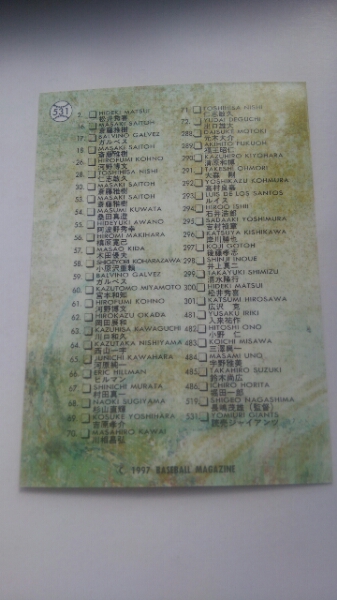 531
HIDEKI MATSUI
松井秀喜
16 MASAKI SAITOH
斎藤雅樹
17 BALVINO GALVEZ
ガルベス
MASAKI SAITOH
斎藤雅樹
26 HIROFUMI KOHNO
河野博文
28 TOSHIHISA NISHI
仁志敏久
30 MASAKI SAITOH
斎藤雅樹
33 MASAKI SAITOH
斎藤雅樹
54 MASUMI KUWATA
桑田真澄
55 HIDEYUKI AWANO
阿波野秀幸
56 HIROMI MAKIHARA
槙原寛己
57 MASAO KIDA
木田優夫
58 SHOICHI KOHARAZAWA
小原沢重頼
59 BALVINO GALVEZ
ガルベス
60 KAZUTOMO MIYAMOTO
宮本和知
61 HIROFUMI KOHNO
河野博文
62 HIROKAZU OKADA
岡田展和
63 KAZUHISA KAWAGUCHI
川口和久
64 KAZUTAKA NISHIYAMA
西山一宇
65 JUNICHI KAWAHARA
河原純一
66 ERIC HILLMAN
ヒルマン
67 SHINICHI MURATA
村田真一
68 NAOKI SUGIYAMA
杉山直輝
69 KOSUKE YOSHIHARA
吉原孝介
70 MASAHIRO KAWAI
川相昌弘
71 TOSHIHISA NISHI
仁志敏久
72 YUDAI DEGUCHI
出口雄大
288 DAISUKE MOTOKI
元木大介
289 AKIHITO FUKUOH
福王昭仁
290 KAZUHIRO KIYOHARA
清原和博
291 TAKESHI OHMORI
大森 剛
292 YOSHIKAZU KOHMURA
LUIS DE LOS SANTOS
ルイス
294 HIROO ISHII
石井浩郎
295 SADAAKI YOSHIMURA
吉村禎章
296 TATSUYA KISHIKAWA
297 KOJI GOTOH
後藤孝志
298 SHINJI INOUE
井上真二
299 TAKAYUKI SHIMIZU
清水隆行
300 HIDEKI MATSUI
松井秀喜
301 KATSUMI HIROSAWA
広沢 克
481 YUSAKU IRIKI
入来祐作
482 HITOSHI ONO
小野 仁
483 KOICHI MISAWA
三沢興一
484 MASAMI UNO
宇野雅美
485 TAKAHIRO SUZUKI
鈴木尚広
486 ICHIRO HORITA
堀田一郎
519 SHIGEO NAGASHIMA
長嶋茂雄(監督)
531 YOMIURI GIANTS
読売ジャイアンツ
C 1997 BASEBALL MAGAZINE